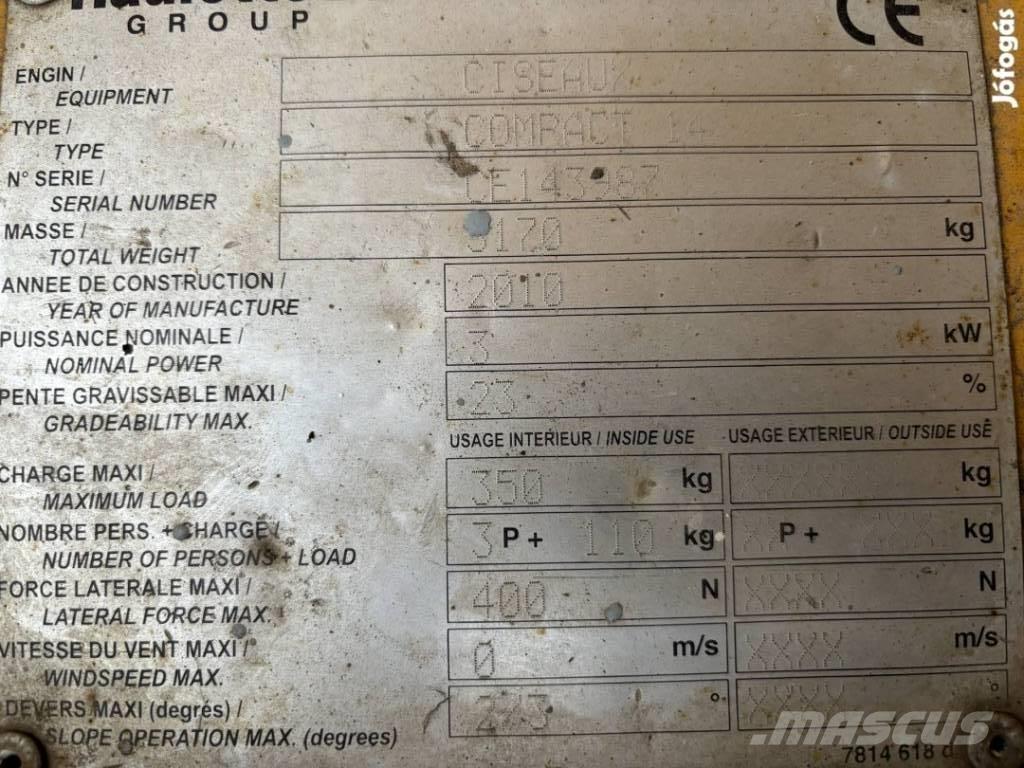 GROUP
CE
Jófogás
ENGIN / CISEAUX
EQUIPMENT
TYPE / COMPACT 14
TYPE
N° SERIE / CE143987
SERIAL NUMBER
MASSE / 3170 kg
TOTAL WEIGHT
ANNEE DE CONSTRUCTION / 2010
YEAR OF MANUFACTURE
PUISSANCE NOMINALE / 3 kW
NOMINAL POWER
PENTE GRAVISSABLE MAXI / 23 %
GRADEABILITY MAX.
USAGE INTERIEUR / INSIDE USE USAGE EXTERIEUR / OUTSIDE USE
CHARGE MAXI / 350 kg XXXX kg
MAXIMUM LOAD
NOMBRE PERS. + CHARGE / 3 P + 110 kg XX P + XXX kg
NUMBER OF PERSONS + LOAD
FORCE LATERALE MAXI / 400 N XXXX N
LATERAL FORCE MAX.
VITESSE DU VENT MAXI / 0 m/s XXXX m/s
WINDSPEED MAX.
DEVERS MAXI (degrés) / 2/3 ° XXXX °
SLOPE OPERATION MAX. (degrees)
MASCUS
7814 618 d